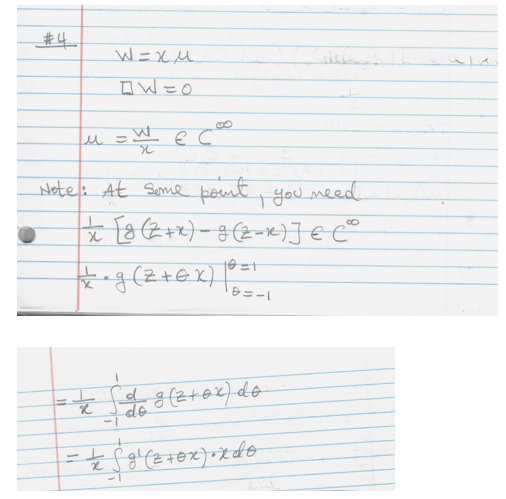 #4
W = x u
□W = 0
u = W/x ∈ C^∞
Note: At some point, you need
1/x [g(z+x) - g(z-x)] ∈ C^∞
1/x · g(z+θx) |_{θ=-1}^{θ=1}
= 1/x ∫_{-1}^{1} d/dθ g(z+θx) dθ
= 1/x ∫_{-1}^{1} g'(z+θx) · x dθ